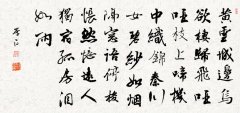 黄雲城邊烏
欲棲歸飛啞
啞枝上啼機
中織錦秦川
女碧紗如烟
隔窗語停梭
悵然憶遠人
獨宿孤房淚
如雨